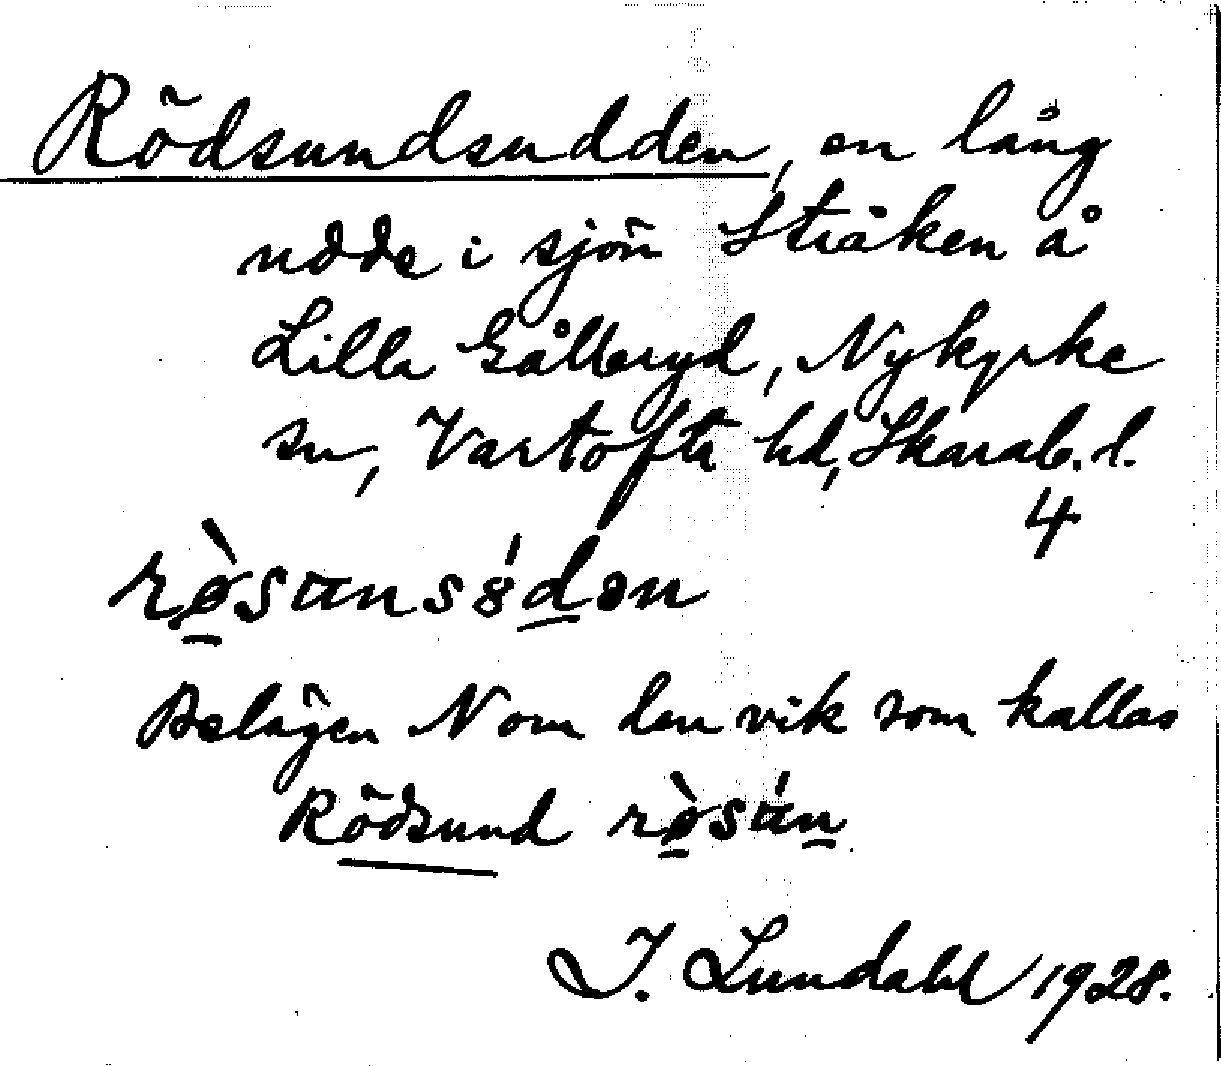 Rödsundsudden, en lång
udde i sjön Stråken å
Lilla Gålleryd, Nykyrke
sn, Vartofta hd, Skarab. l.
4
rø̀sɯnsȣ́dən
Belägen N om den vik som kallas
Rödsund rø̀sɯ́n
I. Lundahl 1928.